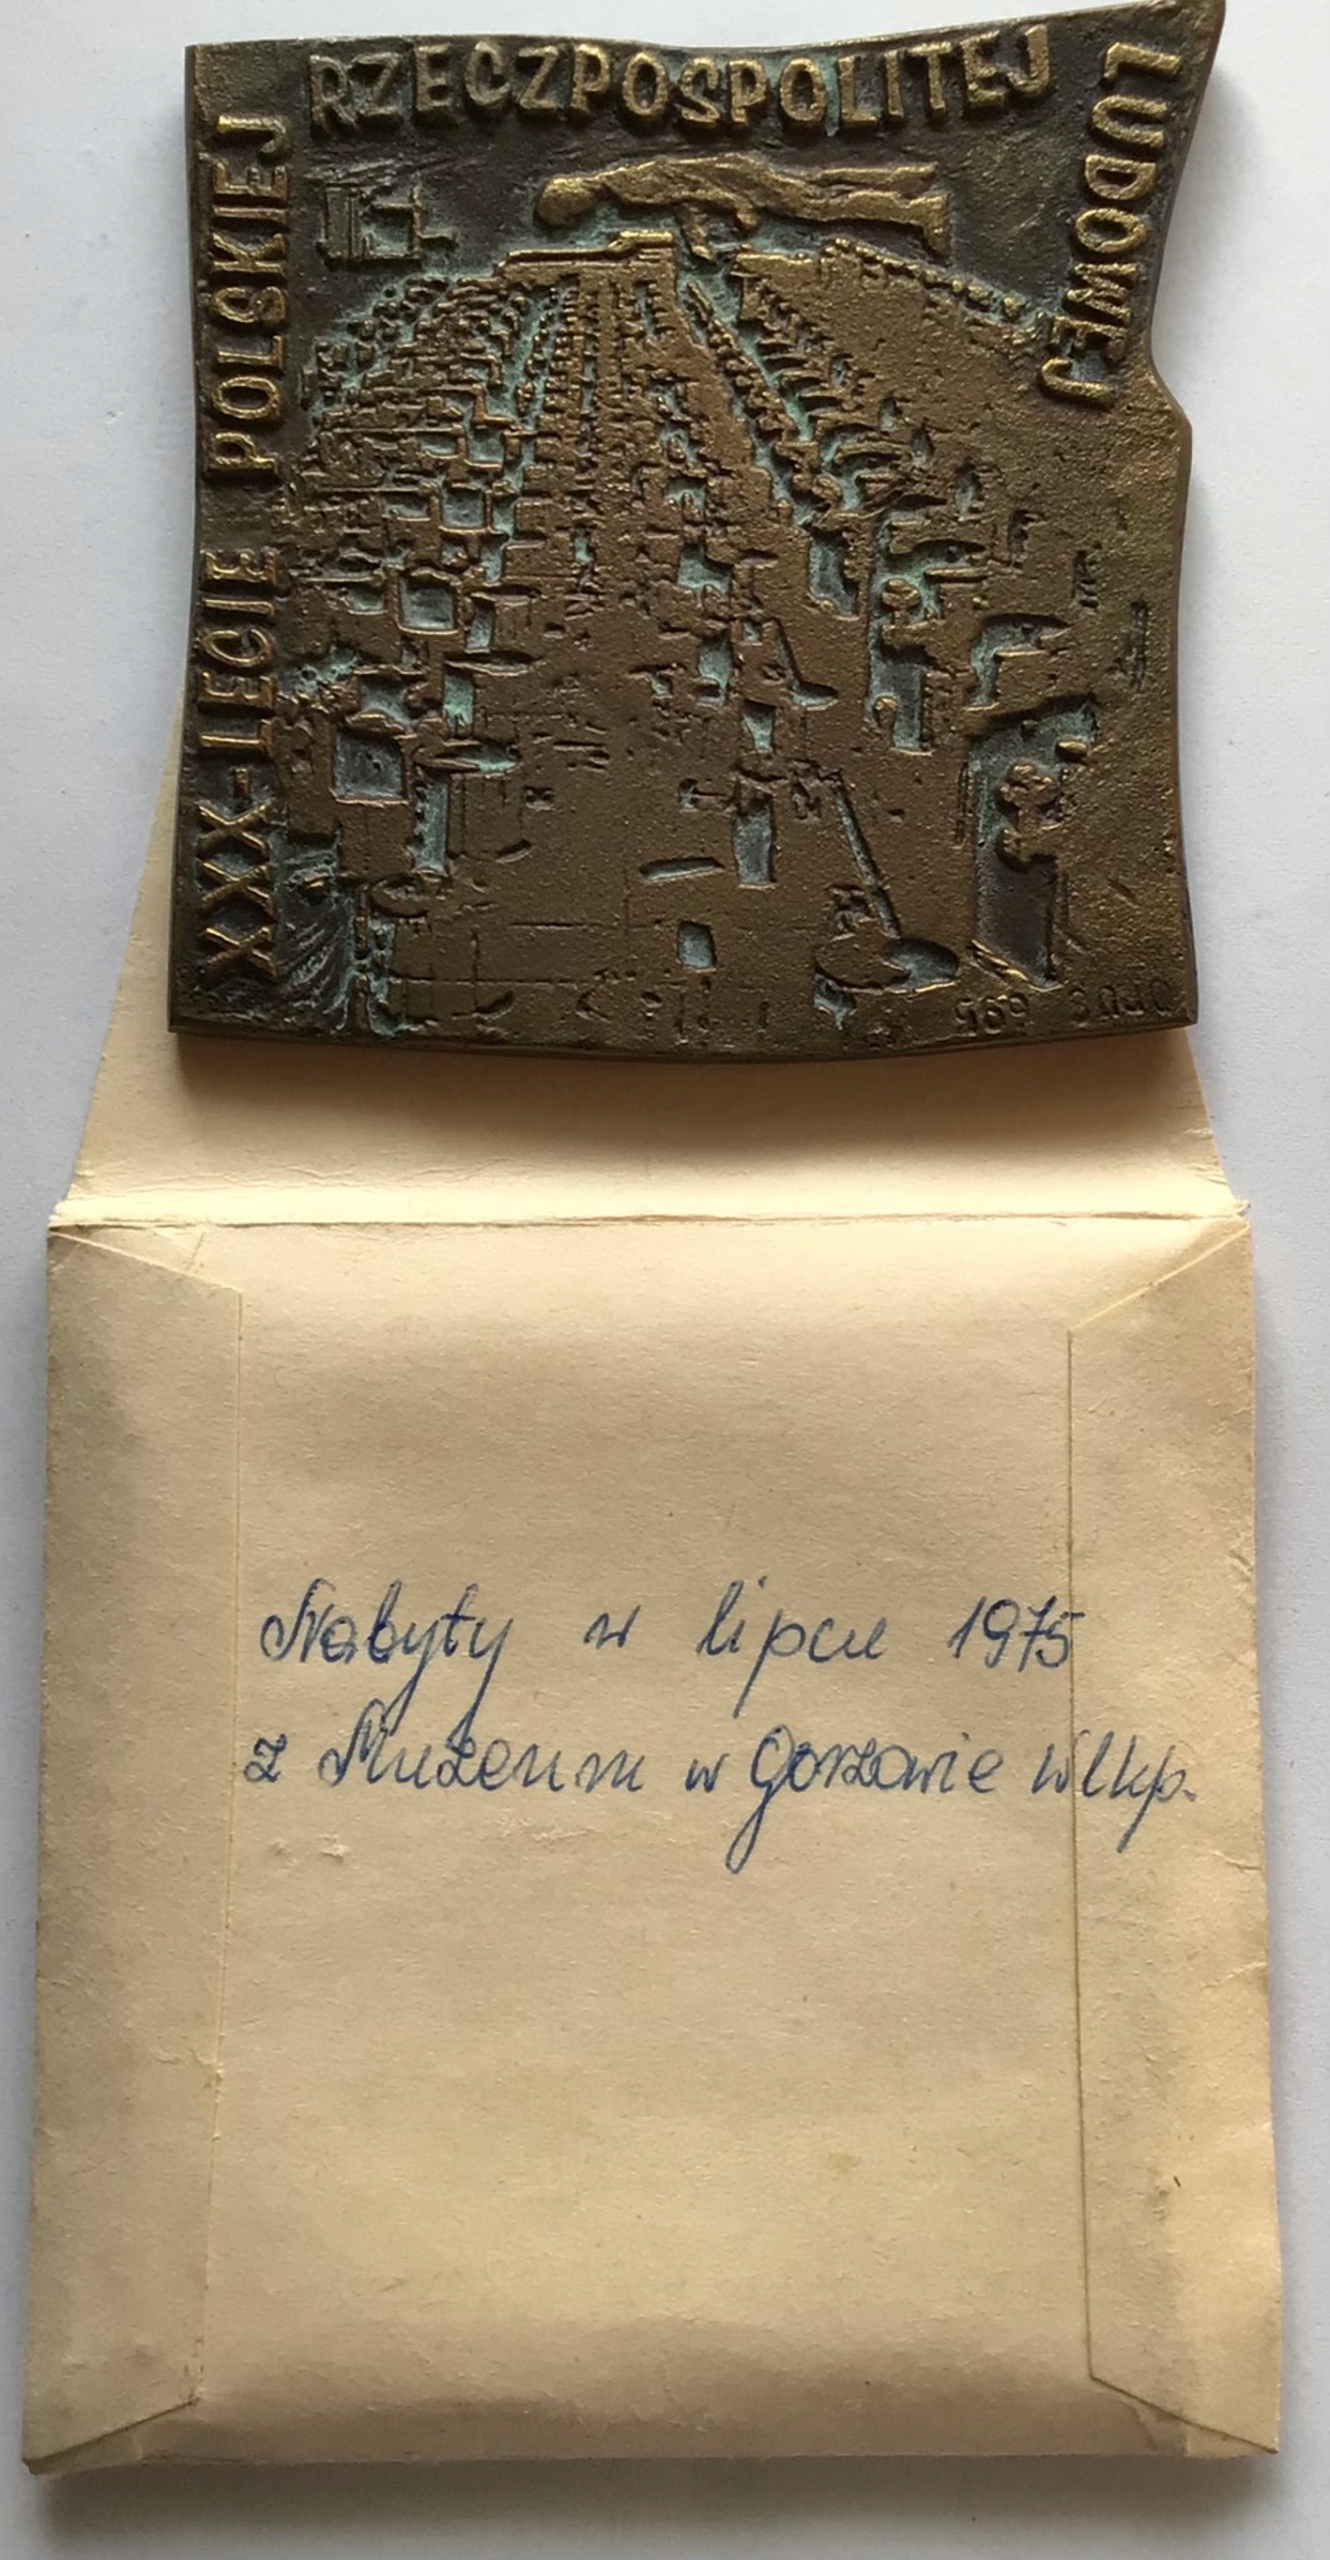 XXX-LECIE POLSKIEJ
RZECZPOSPOLITEJ
LUDOWEJ
Nabyty w lipcu 1975
z Muzeum w Gorzowie Wlkp.